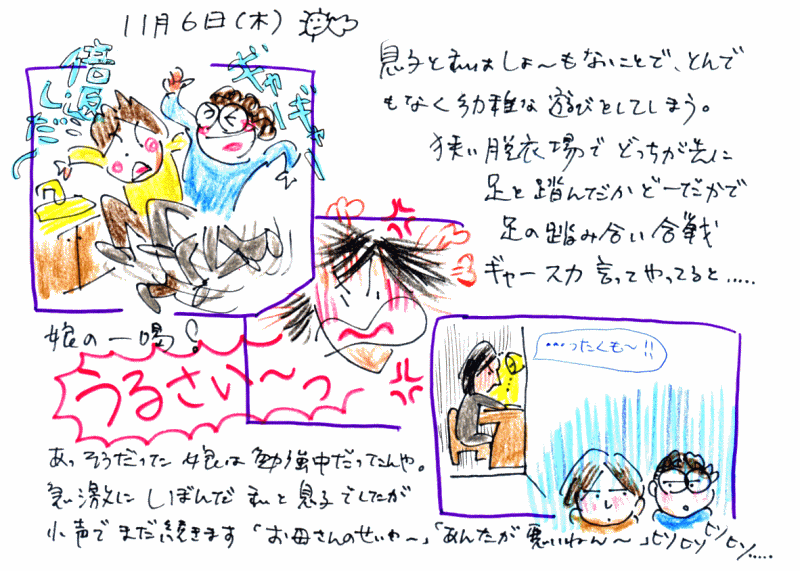 11月6日(木)
倍返しだ〜
ギャーギャー
息子と私はしょ〜もないことで、とんで
もなく幼稚な遊びをしてしまう。
狭い脱衣場でどっちが先に
足を踏んだかどーだかで
足の踏み合い合戦
ギャースカ言ってやってると.....
娘の一喝!
うるさい〜っ
…ったくも〜!!
あっそうだった娘は勉強中だったんや。
急激にしぼんだ私と息子でしたが
小声でまだ続きます「お母さんのせいや〜」「あんたが悪いねん〜」ヒソヒソヒソヒソ.....